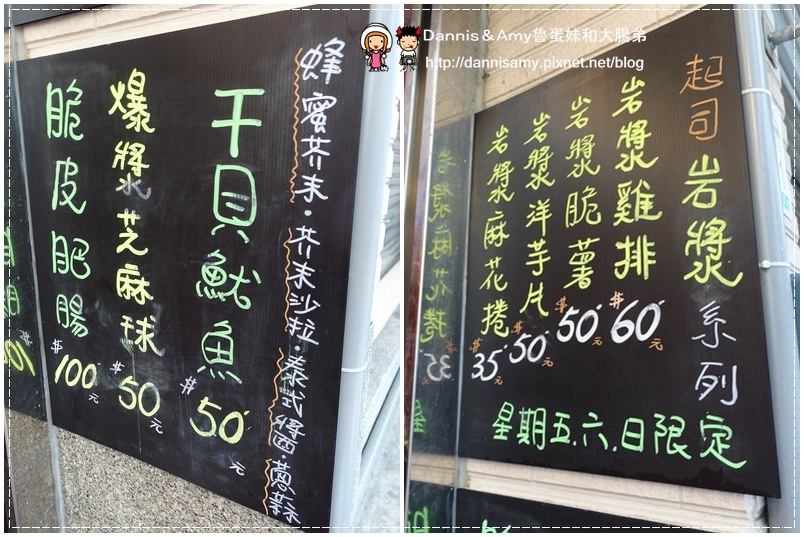 Dannis & Amy魯蛋妹和大腸弟
http://dannisamy.pixnet.net/blog
蜂蜜芥末・芥末沙拉・泰式醬・蔥蒜
干貝魷魚 $50元
爆漿芝麻球 $50元
脆皮肥腸 $100元
起司岩漿系列
岩漿雞排 $60元
岩漿脆薯 $50元
岩漿洋芋片 $50元
岩漿麻花捲 $35元
星期五.六.日限定
岩漿麻花捲 35